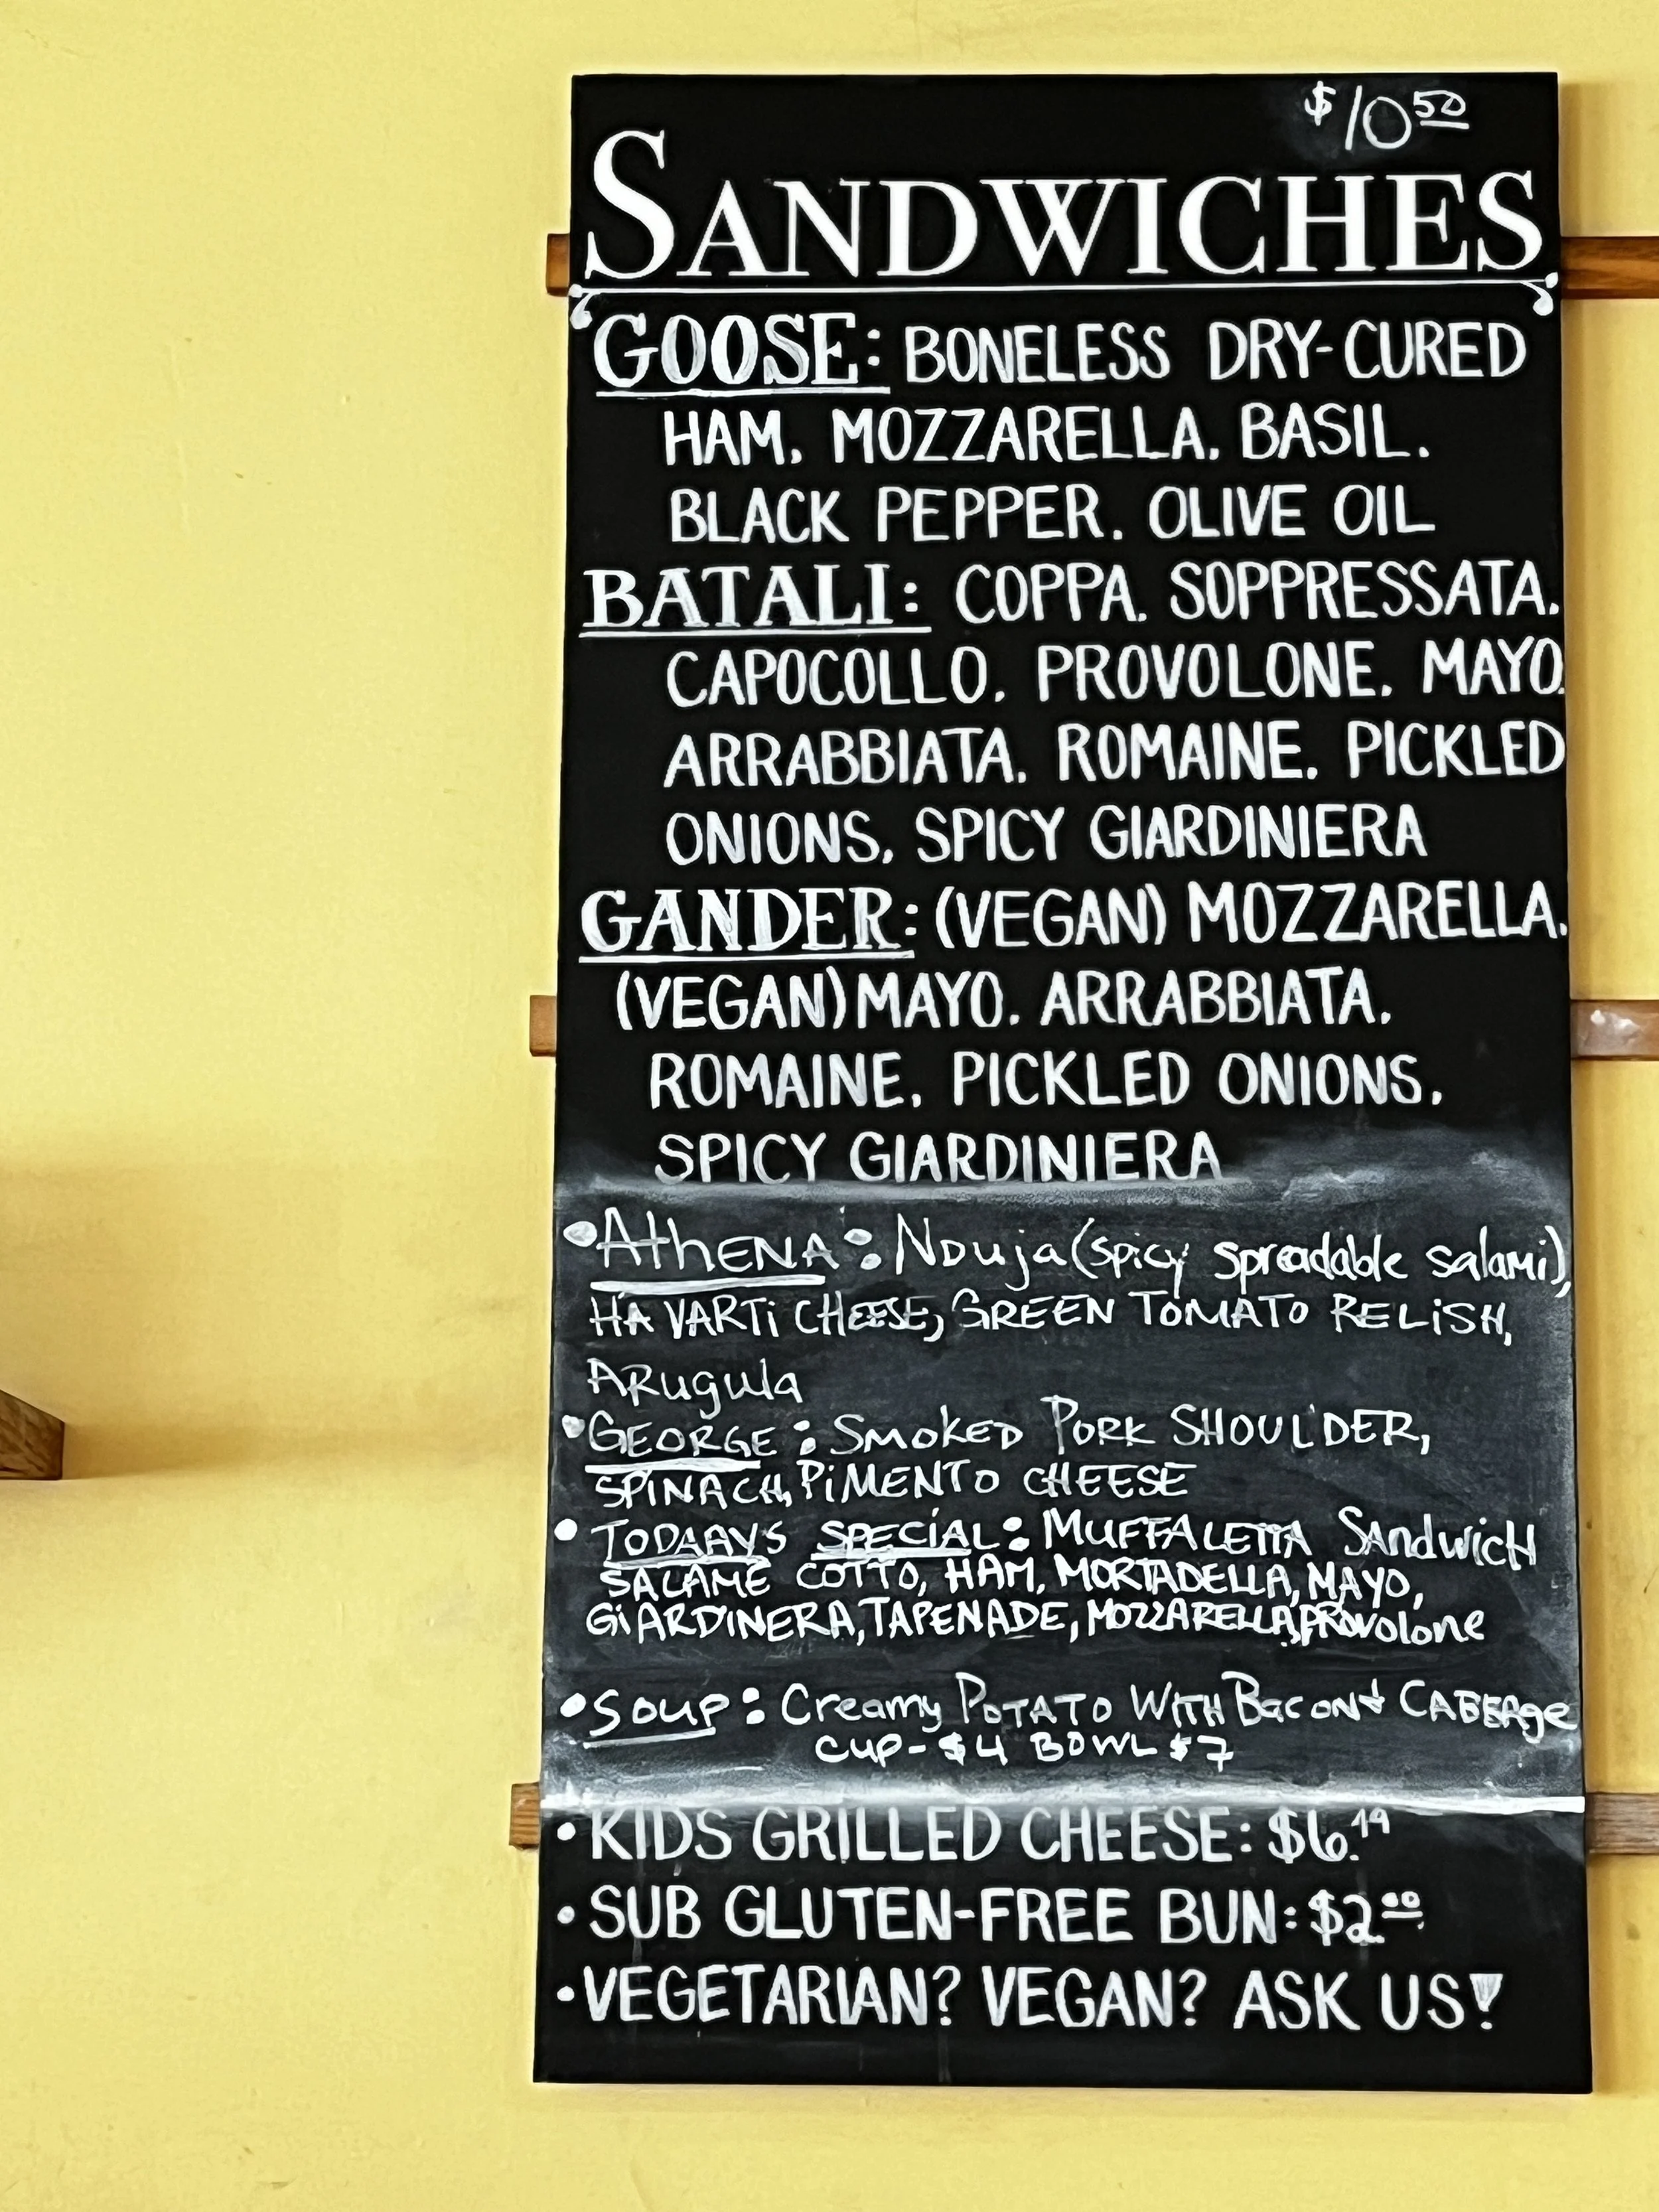 $10 50
SANDWICHES
GOOSE: BONELESS DRY-CURED
HAM, MOZZARELLA, BASIL,
BLACK PEPPER, OLIVE OIL
BATALI: COPPA, SOPPRESSATA,
CAPOCOLLO, PROVOLONE, MAYO,
ARRABBIATA, ROMAINE, PICKLED
ONIONS, SPICY GIARDINIERA
GANDER: (VEGAN) MOZZARELLA,
(VEGAN) MAYO, ARRABBIATA,
ROMAINE, PICKLED ONIONS,
SPICY GIARDINIERA
•AthENA: NDuja (spicy spreadable salami),
HAVARTi CHEESE, GREEN TOMATO RELiSH,
ARugula
•GEORGE: SMOKED PORK SHOULDER,
SPINACH, PiMENTO CHEESE
• TODAAYS SPECIAL: MUFFALETTA SANdwicH
SALAME COTTO, HAM, MORTADELLA, MAYO,
GiARDINERA, TAPENADE, MOZZARELLA, PROVolone
•SOUP: Creamy POTATO WITH Bacon & CABBAge
CUP - $4 BOWL $7
• KIDS GRILLED CHEESE: $6.19
• SUB GLUTEN-FREE BUN: $2 00
• VEGETARIAN? VEGAN? ASK US!